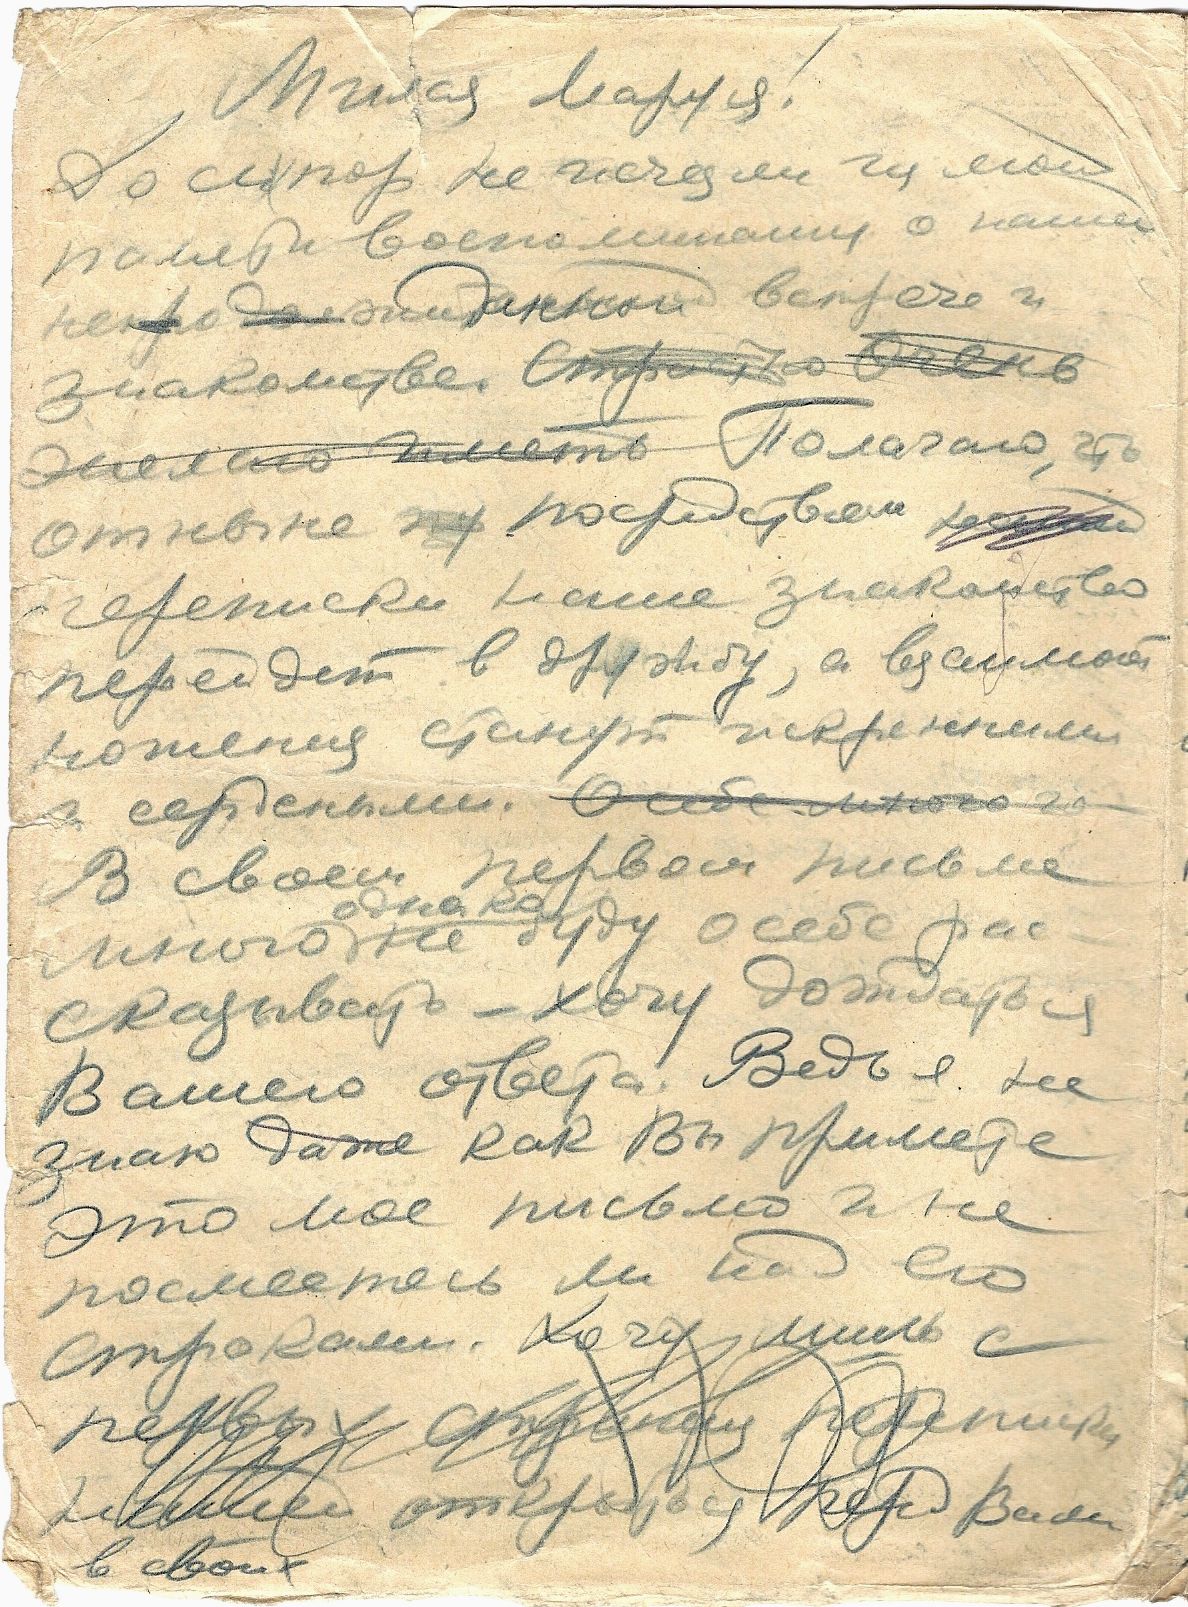 Милая Маруся!
До сих пор не исчезли из моей
памяти воспоминания о нашей
неожиданной встрече и
знакомстве. Страстно Очень
желаю иметь Полагаю, что
отныне посредством
переписки наше знакомство
перейдет в дружбу, а взаимоот
ношения станут искренними
и сердечными. О себе много не
В своем первом письме
однако
много не буду о себе рас-
сказывать – хочу дождаться
Вашего ответа. Ведь я не
знаю даже как Вы примете
это мое письмо и не
посмеетесь ли над его
строками. Хочу лишь с
первых страниц переписки
нашей открыться перед Вами
в своих